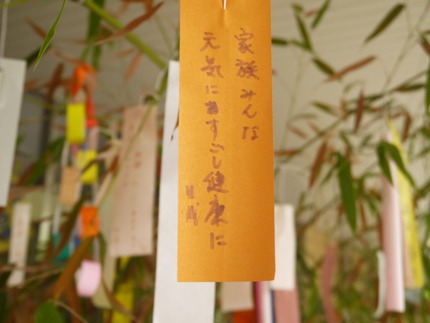 家族みんな
元気にすごし健康に